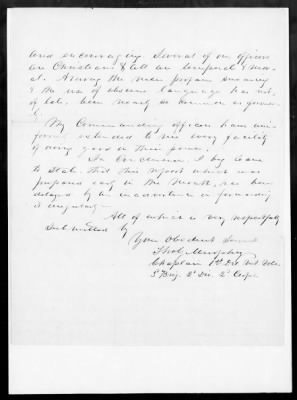 and encouraging. Several of our officers
are Christians & all are temperate & mor-
al. Among the men profane swearing
& the use of obscene language has not,
of late, been nearly so common as former-
ly.
My Commanding officers have uni-
formly extended to me every facility
of doing good in their power.
In Conclusion I beg leave
to State, that this report which was
prepared early in the month, has been
delayed by an inadvertence in forwarding
it regularly.
All of which is very respectfully
Submitted by
Your Obedient Servant
Thos. Murphy
Chaplain 1st Del. Vet. Vols.
3d Brig. 2d Div. 2d Corps